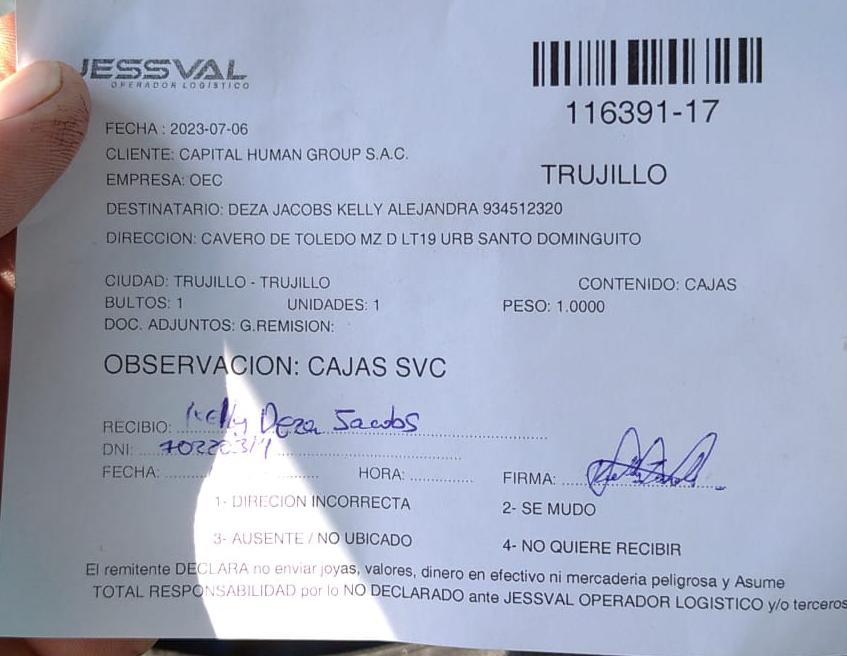 JESSVAL
OPERADOR LOGÍSTICO
116391-17
FECHA : 2023-07-06
CLIENTE: CAPITAL HUMAN GROUP S.A.C.
EMPRESA: OEC
TRUJILLO
DESTINATARIO: DEZA JACOBS KELLY ALEJANDRA 934512320
DIRECCION: CAVERO DE TOLEDO MZ D LT19 URB SANTO DOMINGUITO
CIUDAD: TRUJILLO - TRUJILLO CONTENIDO: CAJAS
BULTOS: 1 UNIDADES: 1 PESO: 1.0000
DOC. ADJUNTOS: G.REMISION:
OBSERVACION: CAJAS SVC
RECIBIO: Kelly Deza Jacobs
DNI:
FECHA: HORA: FIRMA:
1- DIRECION INCORRECTA 2- SE MUDO
3- AUSENTE / NO UBICADO 4- NO QUIERE RECIBIR
El remitente DECLARA no enviar joyas, valores, dinero en efectivo ni mercaderia peligrosa y Asume
TOTAL RESPONSABILIDAD por lo NO DECLARADO ante JESSVAL OPERADOR LOGISTICO y/o terceros